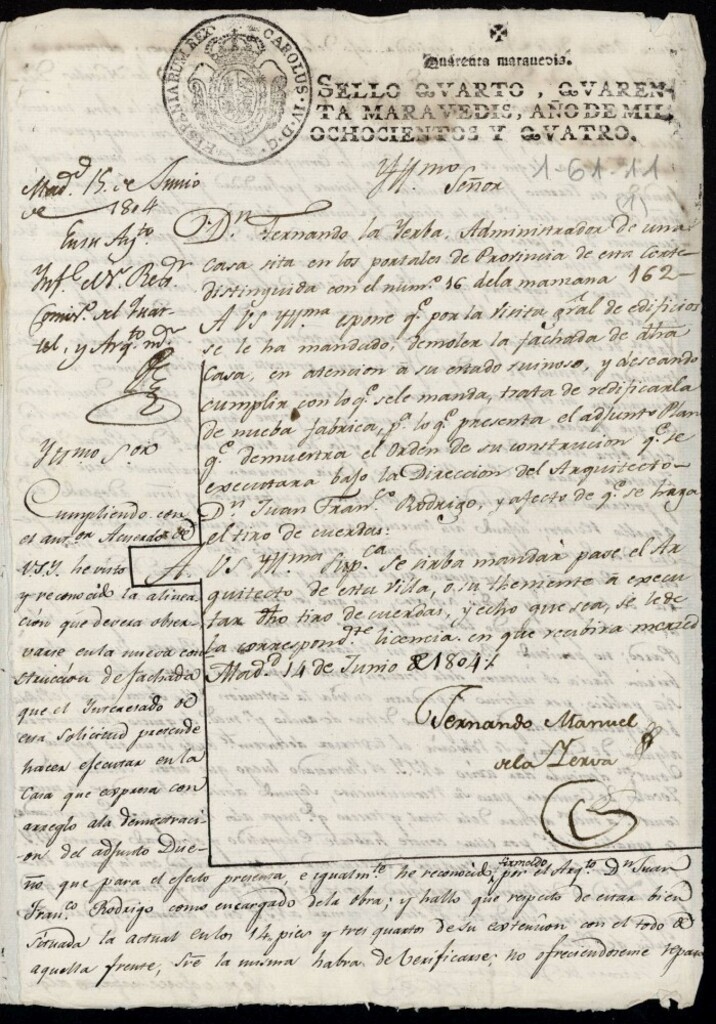 HISPANIARUM REX
CAROLUS · IV · D · G ·
Quarenta marauedis.
SELLO QVARTO, QVAREN-
TA MARAVEDIS, AÑO DE MIL
OCHOCIENTOS Y QVATRO.
1-61-11
(1)
Yll.mo Señor
D.n Fernando la Yerba, Administrador de una
casa sita en los portales de Provincia de esta Corte
distinguida con el num.o 16 dela manzana 162-
A VS Yll.ma espone q.e por la visita gral de edificios
se le ha mandado, demoler la fachada de dha
Casa, en atencion a su estado ruinoso, y deseando
cumplir con lo q.e sele manda, trata de redificarla
de nueba fabrica, p.a lo q.e presenta el adjunto Plan
q.e demuestra el Orden de su construcion q.e se
executara bajo la Direccion del Arquitecto-
D.n Juan Fran.co Rodrigo, y afecto de q.e se haga
el tiro de cuerdas:
A VS Yll.ma Sup.ca se sirba mandar pase el Ar
quitecto de esta Villa, o su theniente a execu
tar dho tiro de cuerdas, y echo que sea, se le de
la correspond.te licencia en que recibira merced
Mad.d 14 de Junio de 1804.
Fernando Manuel
dela Yerva
Mad.d 15 de Junio
de 1804
En su Ay.to
Inf.e el Sr. Reg.r
Comis.o del Quar
tel, y Arq.to m.r
Yll.mo S.or
Cumpliendo con
el ant.or Acuerdo de
V.S.Y. he visto
y reconocido la alinea
cion que devera obser
varse en la nueva con
struccion de fachada
que el Interesado de
esta solicitud pretende
hacer efecutar en la
Casa que expresa con
arreglo ala demostraci
on del adjunto Dise-
ño que para el efecto presenta, e igualm.te he reconocido, firmado por el Arq.to D.n Juan
Fran.co Rodrigo como encargado dela obra; y hallo que respecto de estar bien
situada la actual en los 14 pies y tres quartos de su extension con el todo de
aquella frente, sre la misma habra de Verificarse; no ofreciendoseme reparo